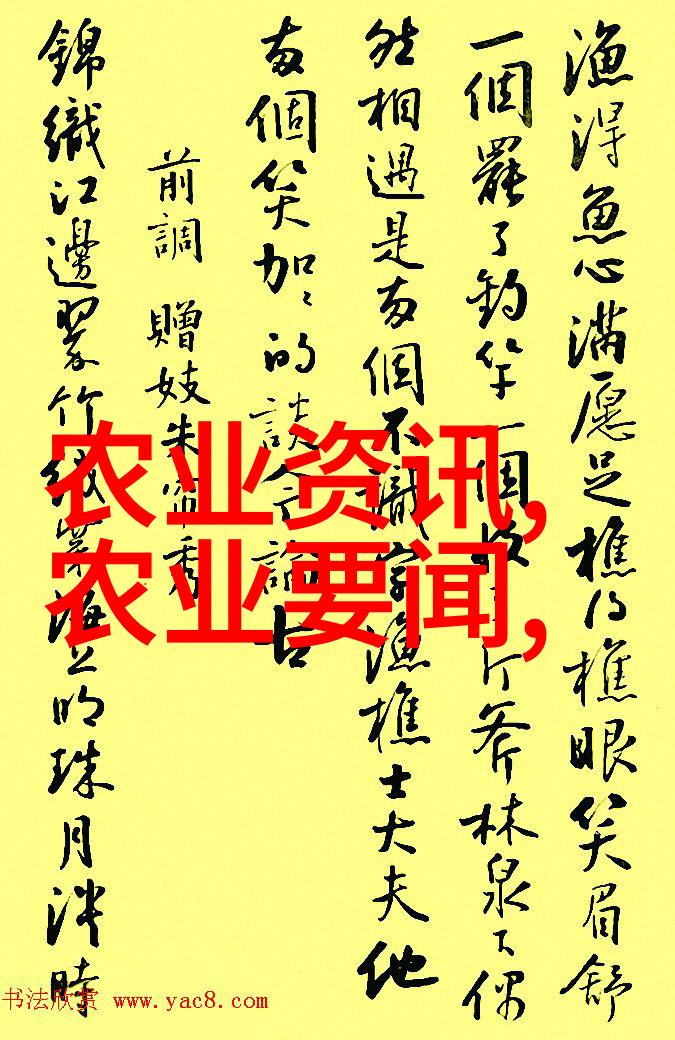 漁得魚心滿愿足樵得樵眼笑眉舒
一個罷了釣竿一個收了斤斧林泉下偶
然相遇是兩個不識字漁樵士大夫他
兩個笑加加的談今論古
前調 贈妓朱帘秀
錦織江邊翠竹絨穿海上明珠月淡時
农业资讯,
农业要闻,
书法欣赏 www.yac8.com